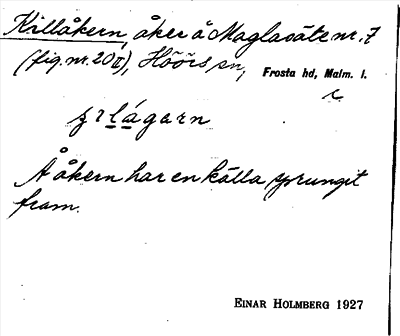 Killåkern, åker å Maglasäte nr. 7
(fig. nr. 20 II), Höörs sn,
Frosta hd, Malm. l.
Å åkern har en källa sprungit
fram.
EINAR HOLMBERG 1927